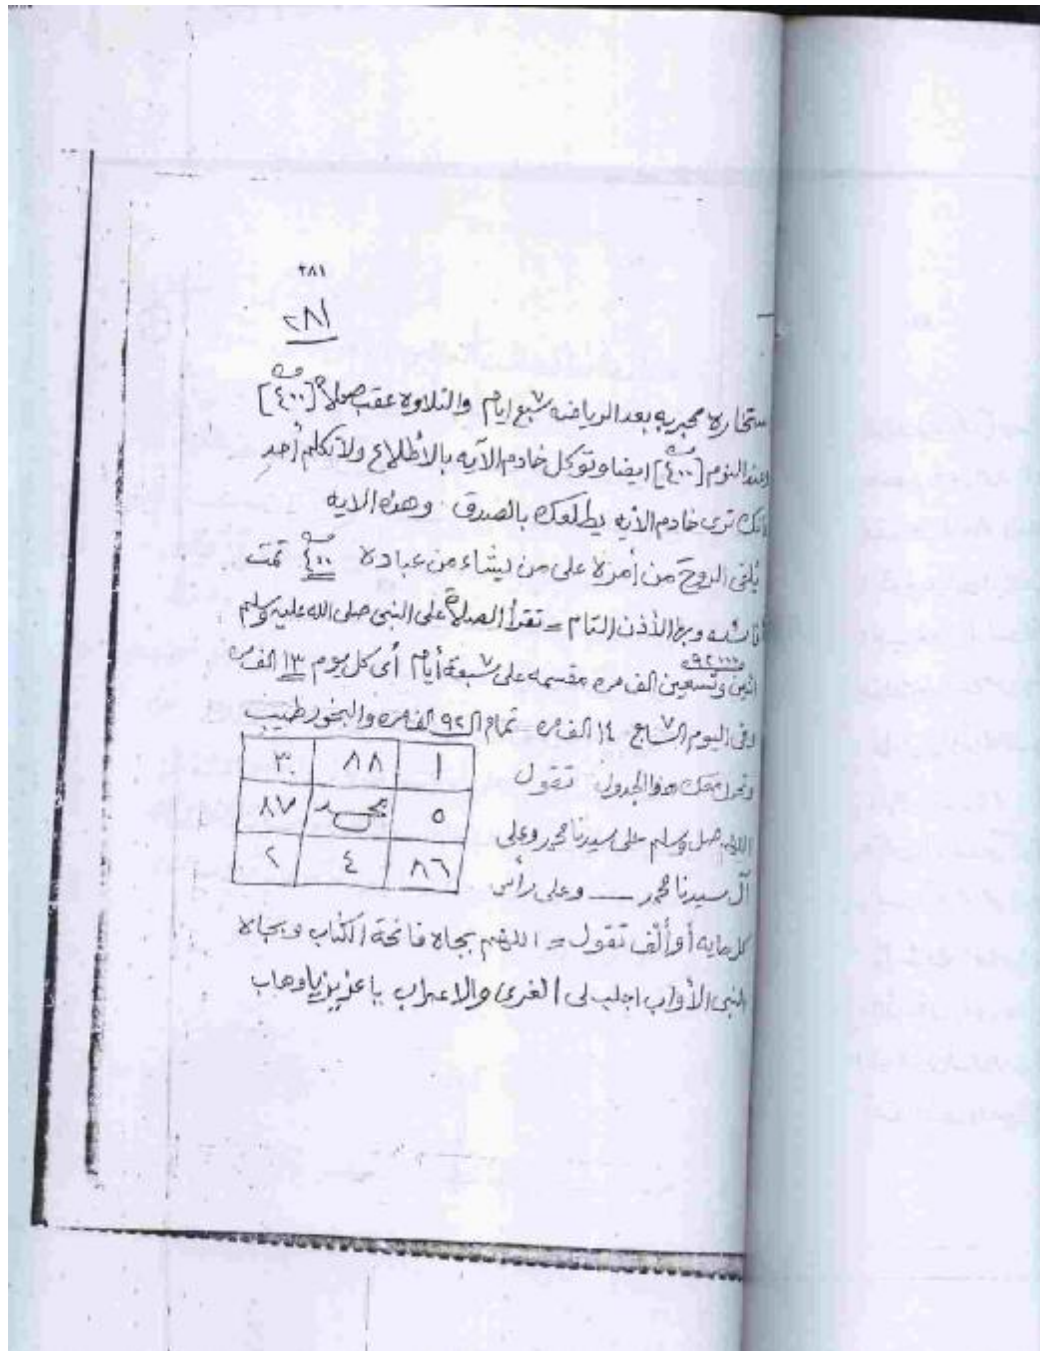 ٢٨١
٢٨١
ستخاره مجربه بعد الرياضه ٧ سبع ايام والتلاوه عقب صلاة [٤٠٠ مره]
وعند النوم [٤٠٠ مره] ايضا وتوكل خادم الآيه بالأطلاع ولا تكلم أحد
فإنك ترى خادم الأيه يطلعك بالصدق وهذه الايه
يُلقى الروحَ من أمره على من يشاء من عباده ٤٠٠ مره تمت
وبها الأذن التام = تقرأ الصلاة على النبى صلى الله عليه وسلم
٩٢٠٠٠ مره
اثنين وتسعين الف مره مقسمه على ٧ سبعة أيام أى كل يوم ١٣ الف مره
وفى اليوم ٧ السابع ١٤ الف مره تمام الـ ٩٢ الف مره والبخور طيب
وتحمل معك هذا الجدول تقول
١ ٨٨ ٣
٥ محمد ٨٧
٨٦ ٤ ٢
اللهم صل وسلم على سيدنا محمد وعلى
آل سيدنا محمد ـــ وعلى رأس
كل مايه أو ألف تقول = اللهم بجاه فاتحة الكتاب وبجاه
النبى الأواب اجلب لى الغرى والاعراب يا عزيز يا وهاب